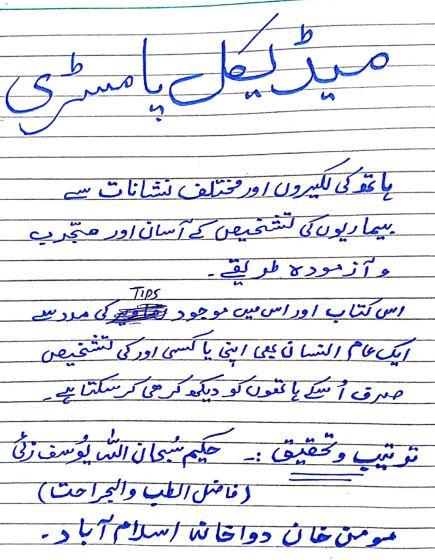 میڈیکل پامسٹری
ہاتھ کی لکیروں اور مختلف نشانات سے
بیماریوں کی تشخیص کے آسان اور مجرب
و آزمودہ طریقے۔
اس کتاب اور اس میں موجود TIPS کی مدد سے
ایک عام انسان بھی اپنی یا کسی اور کی تشخیص
صرف اُسکے ہاتھوں کو دیکھ کر ھی کر سکتا ہے۔
ترتیب و تحقیق :۔ حکیم سُبحان اللہ یُوسف زئی
(فاضل الطب والجراحت)
مومن خان دواخانہ اسلام آباد۔